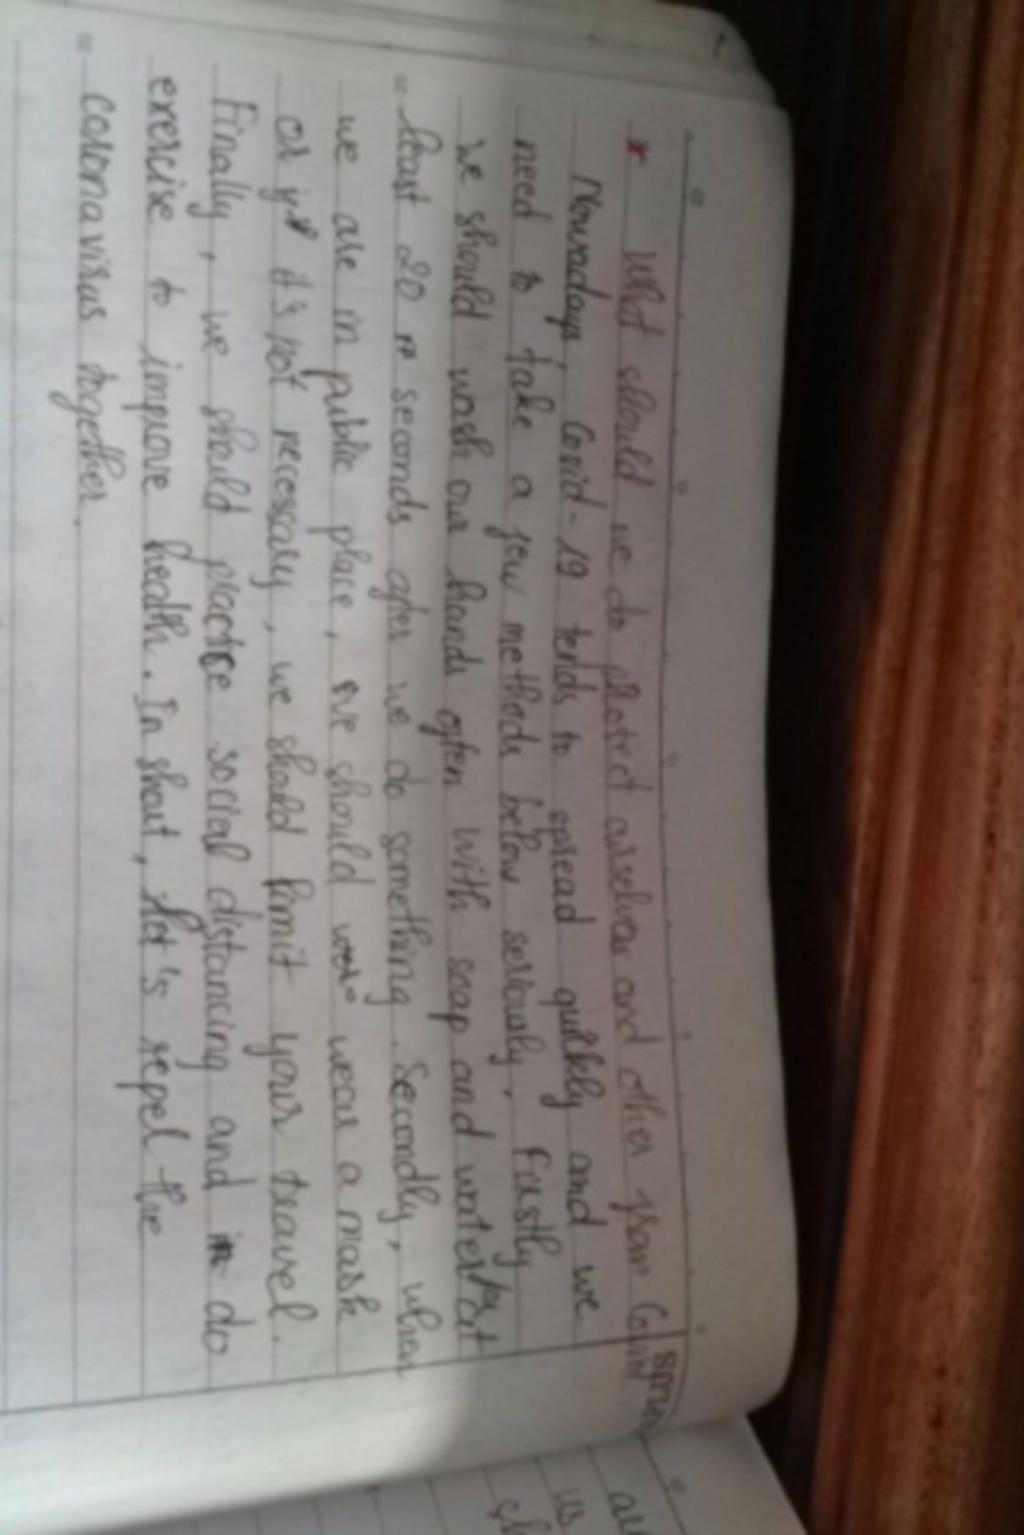 * What should we do protect ourselves and other from Covid
Nowadays, Covid-19 tends to spread quickly and we
need to take a few methods below seriously. Firstly
we should wash our hands often with soap and water at
least 20 seconds after we do something. Secondly, when
we are in public place, we should wear a mask
or it's not necessary, we should limit your travel.
Finally, we should practice social distancing and do
exercise to improve health. In short, let's repel the
coronavirus together.
us